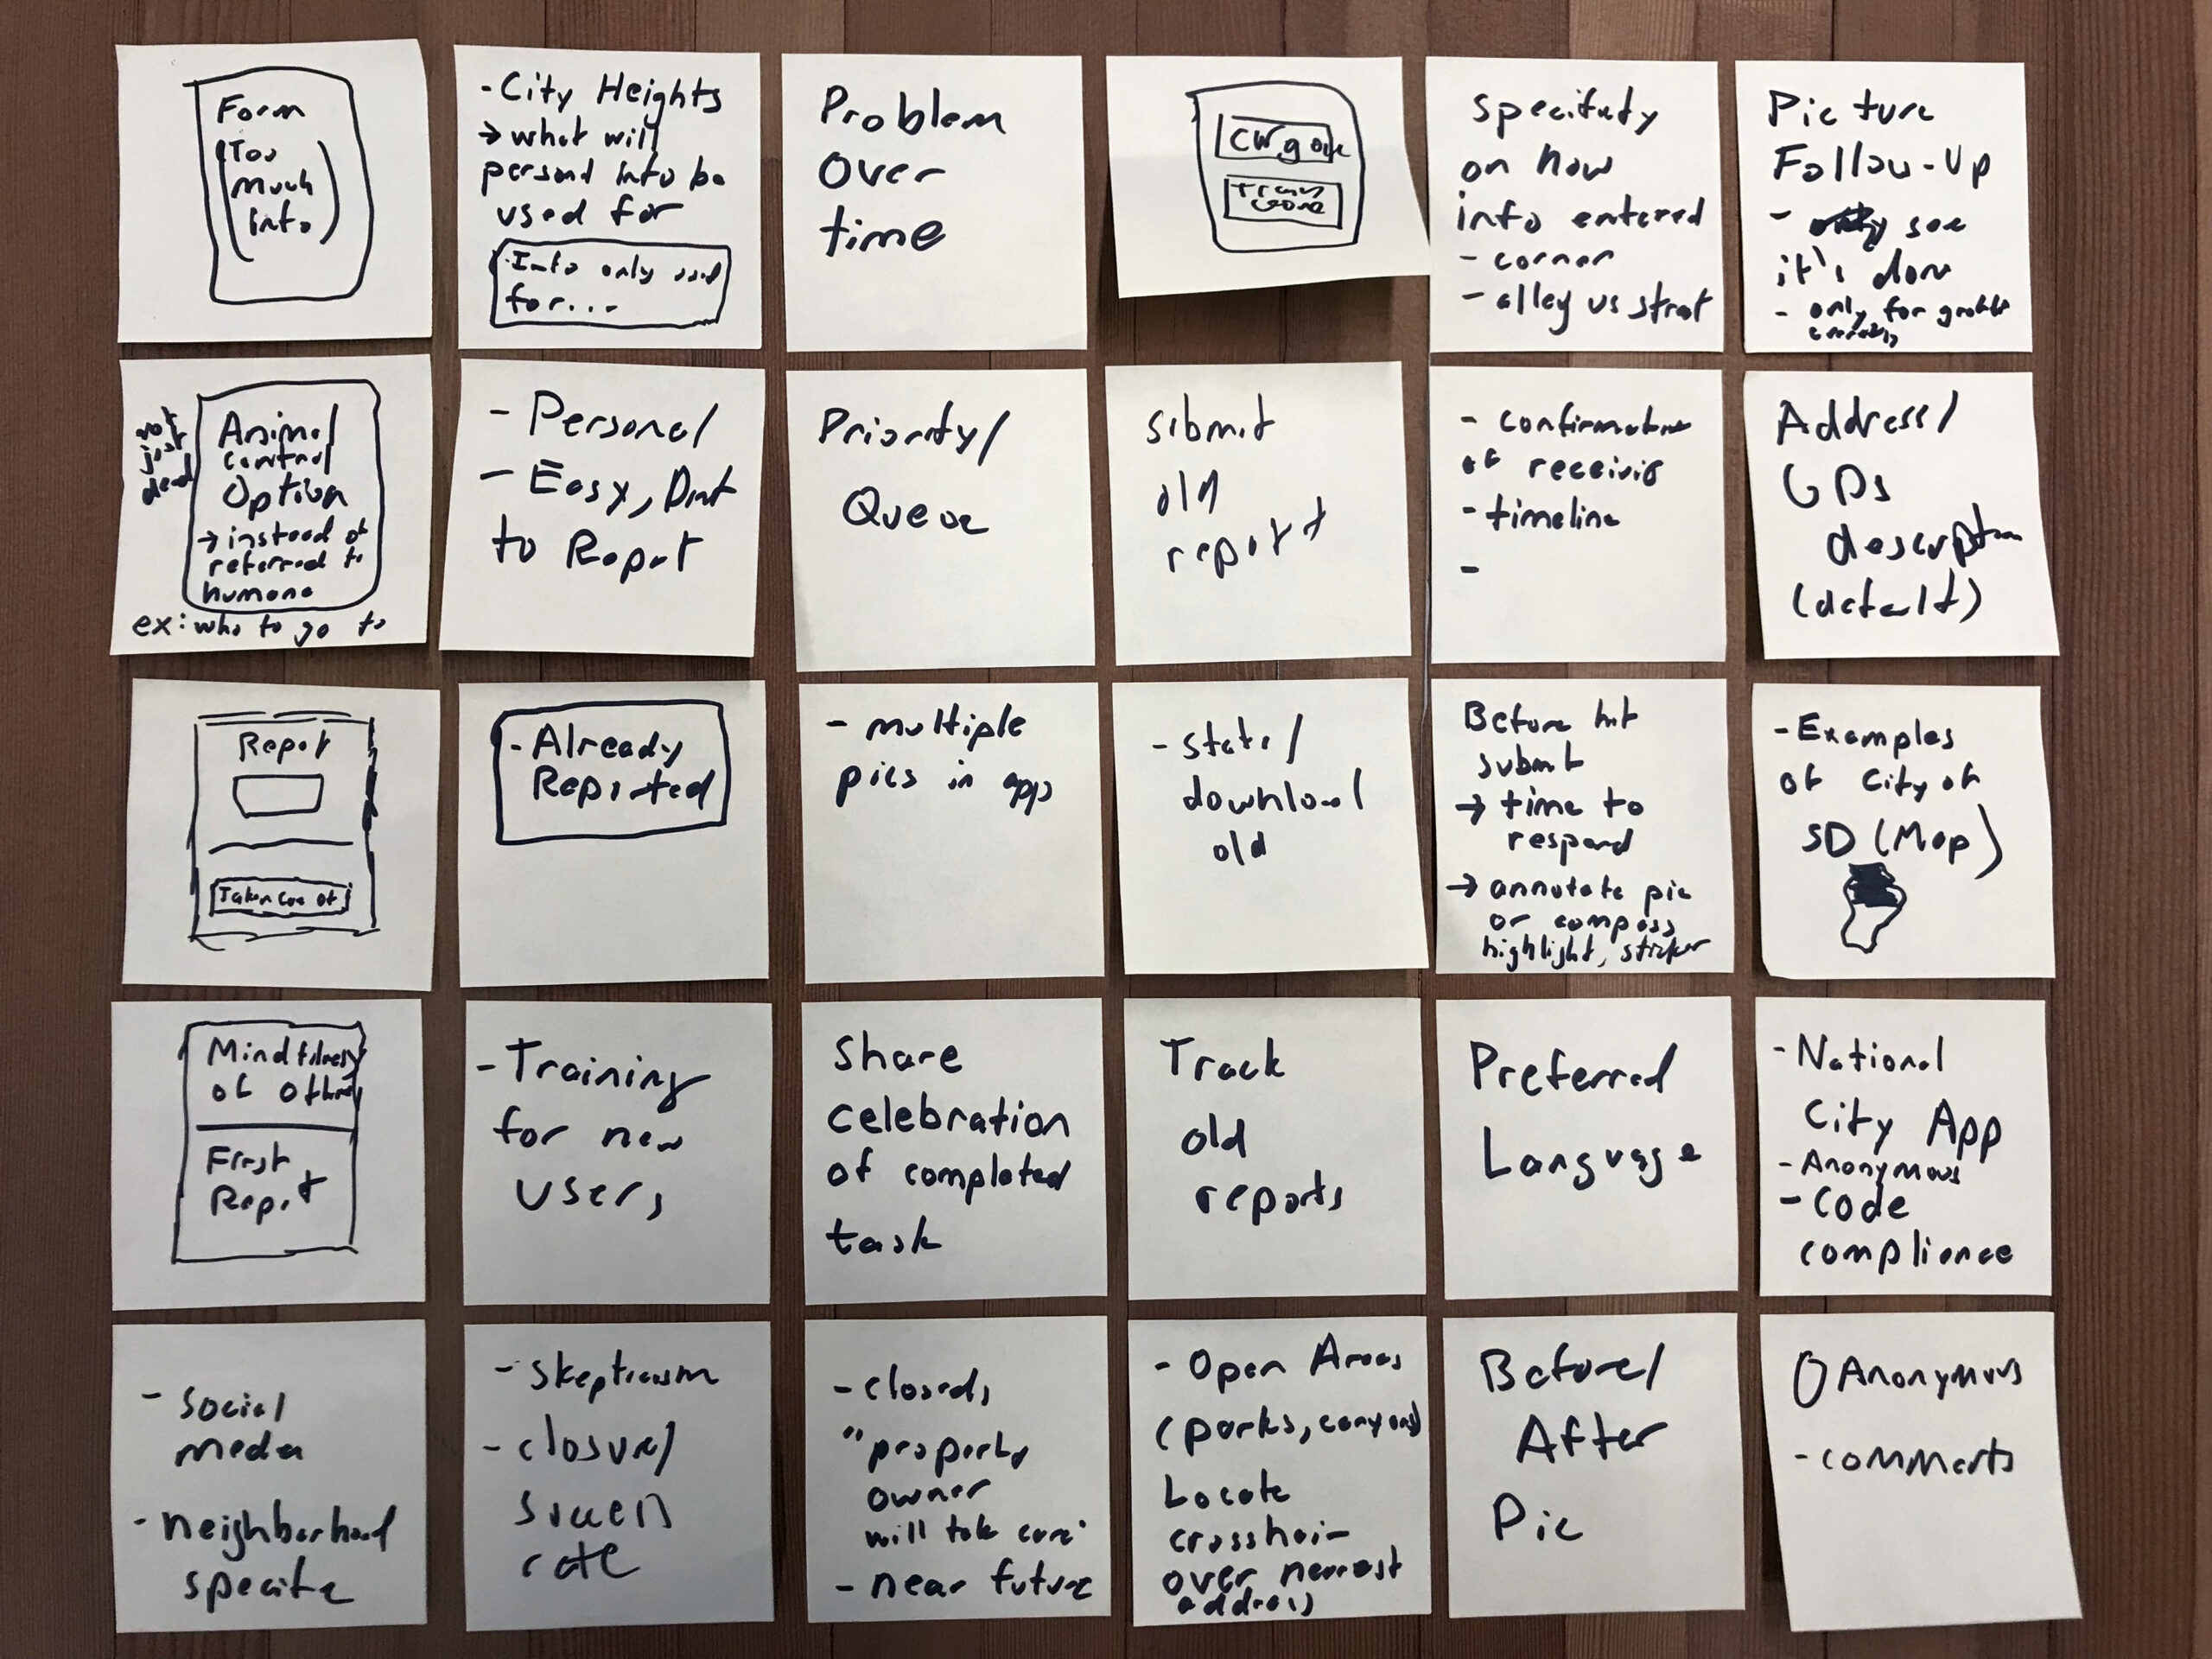 Form
(Too
much
info)
- City Heights
→ what will
personal info be
used for
Info only used
for...
Problem
over
time
specifity
on how
info entered
- corner
- alley vs street
Picture
Follow-Up
- see
it's done
- only for
not
just
dead
Animal
control
Option
→ instead of
referred to
humane
ex: who to go to
- Personal
- Easy,
to Report
Priority/
Queue
submit
old
report
- confirmation
of receiving
- timeline
-
Address/
GPS
description
(default)
Report
Taken care of
- Already
Reported
- multiple
pics in app
- state/
download
old
Before hit
submit
→ time to
respond
→ annotate pic
or compass
highlight, sticker
- Examples
of City of
SD (Map)
Mindfulness
of others
First
Report
- Training
for new
users
share
celebration
of completed
task
Track
old
reports
Preferred
Language
- National
City App
- Anonymous
- Code
compliance
- social
media
- neighborhood
specific
- skepticism
- closure/
success
rate
- closed,
"property
owner
will take care"
- near future
- Open Areas
(parks, canyons)
Locate
crosshair
over nearest
address
Before/
After
Pic
O Anonymous
- comments